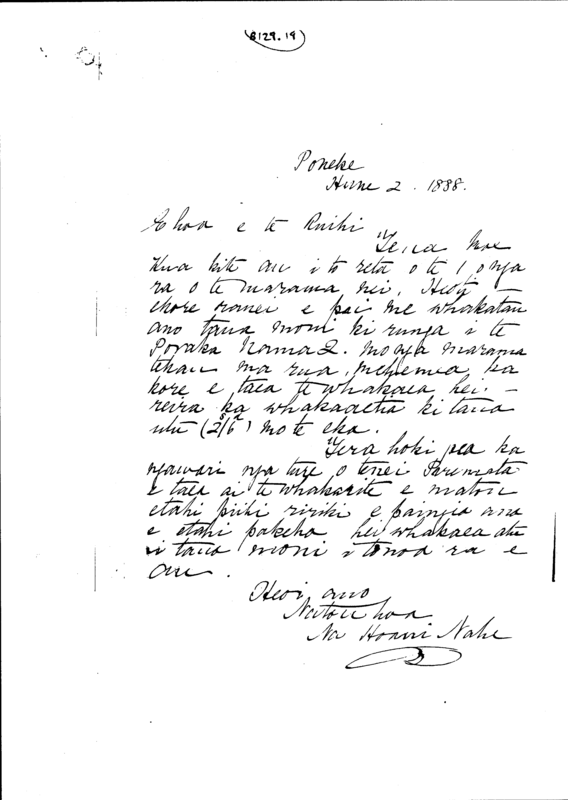 8129.19
Poneke
Hune 2. 1888.
E hoa e te Ruihi
Tena koe
Kua kite au i to reta o te 1 o nga
ra o te marama nei. Heoi –
ekore ranei e pai me whakatau
ano taua moni ki runga i te
Poraka Nama 2. mo nga marama
tekau ma rua, mehemea ka
kore e taea te whakaea hei –
reira ka whakaaetia ki taua
utu (2s/6d) mo te eka.
Tera hoki pea ka
ngawari nga ture o tenei Paremata
e taea ai te whakarite e matou
etahi piihi ririki e paingia ana
e etahi pakeha hei whakaea atu
i taua moni i tonoa ra e
au.
Heoi ano
Na to hoa
Na Hoani Nahe